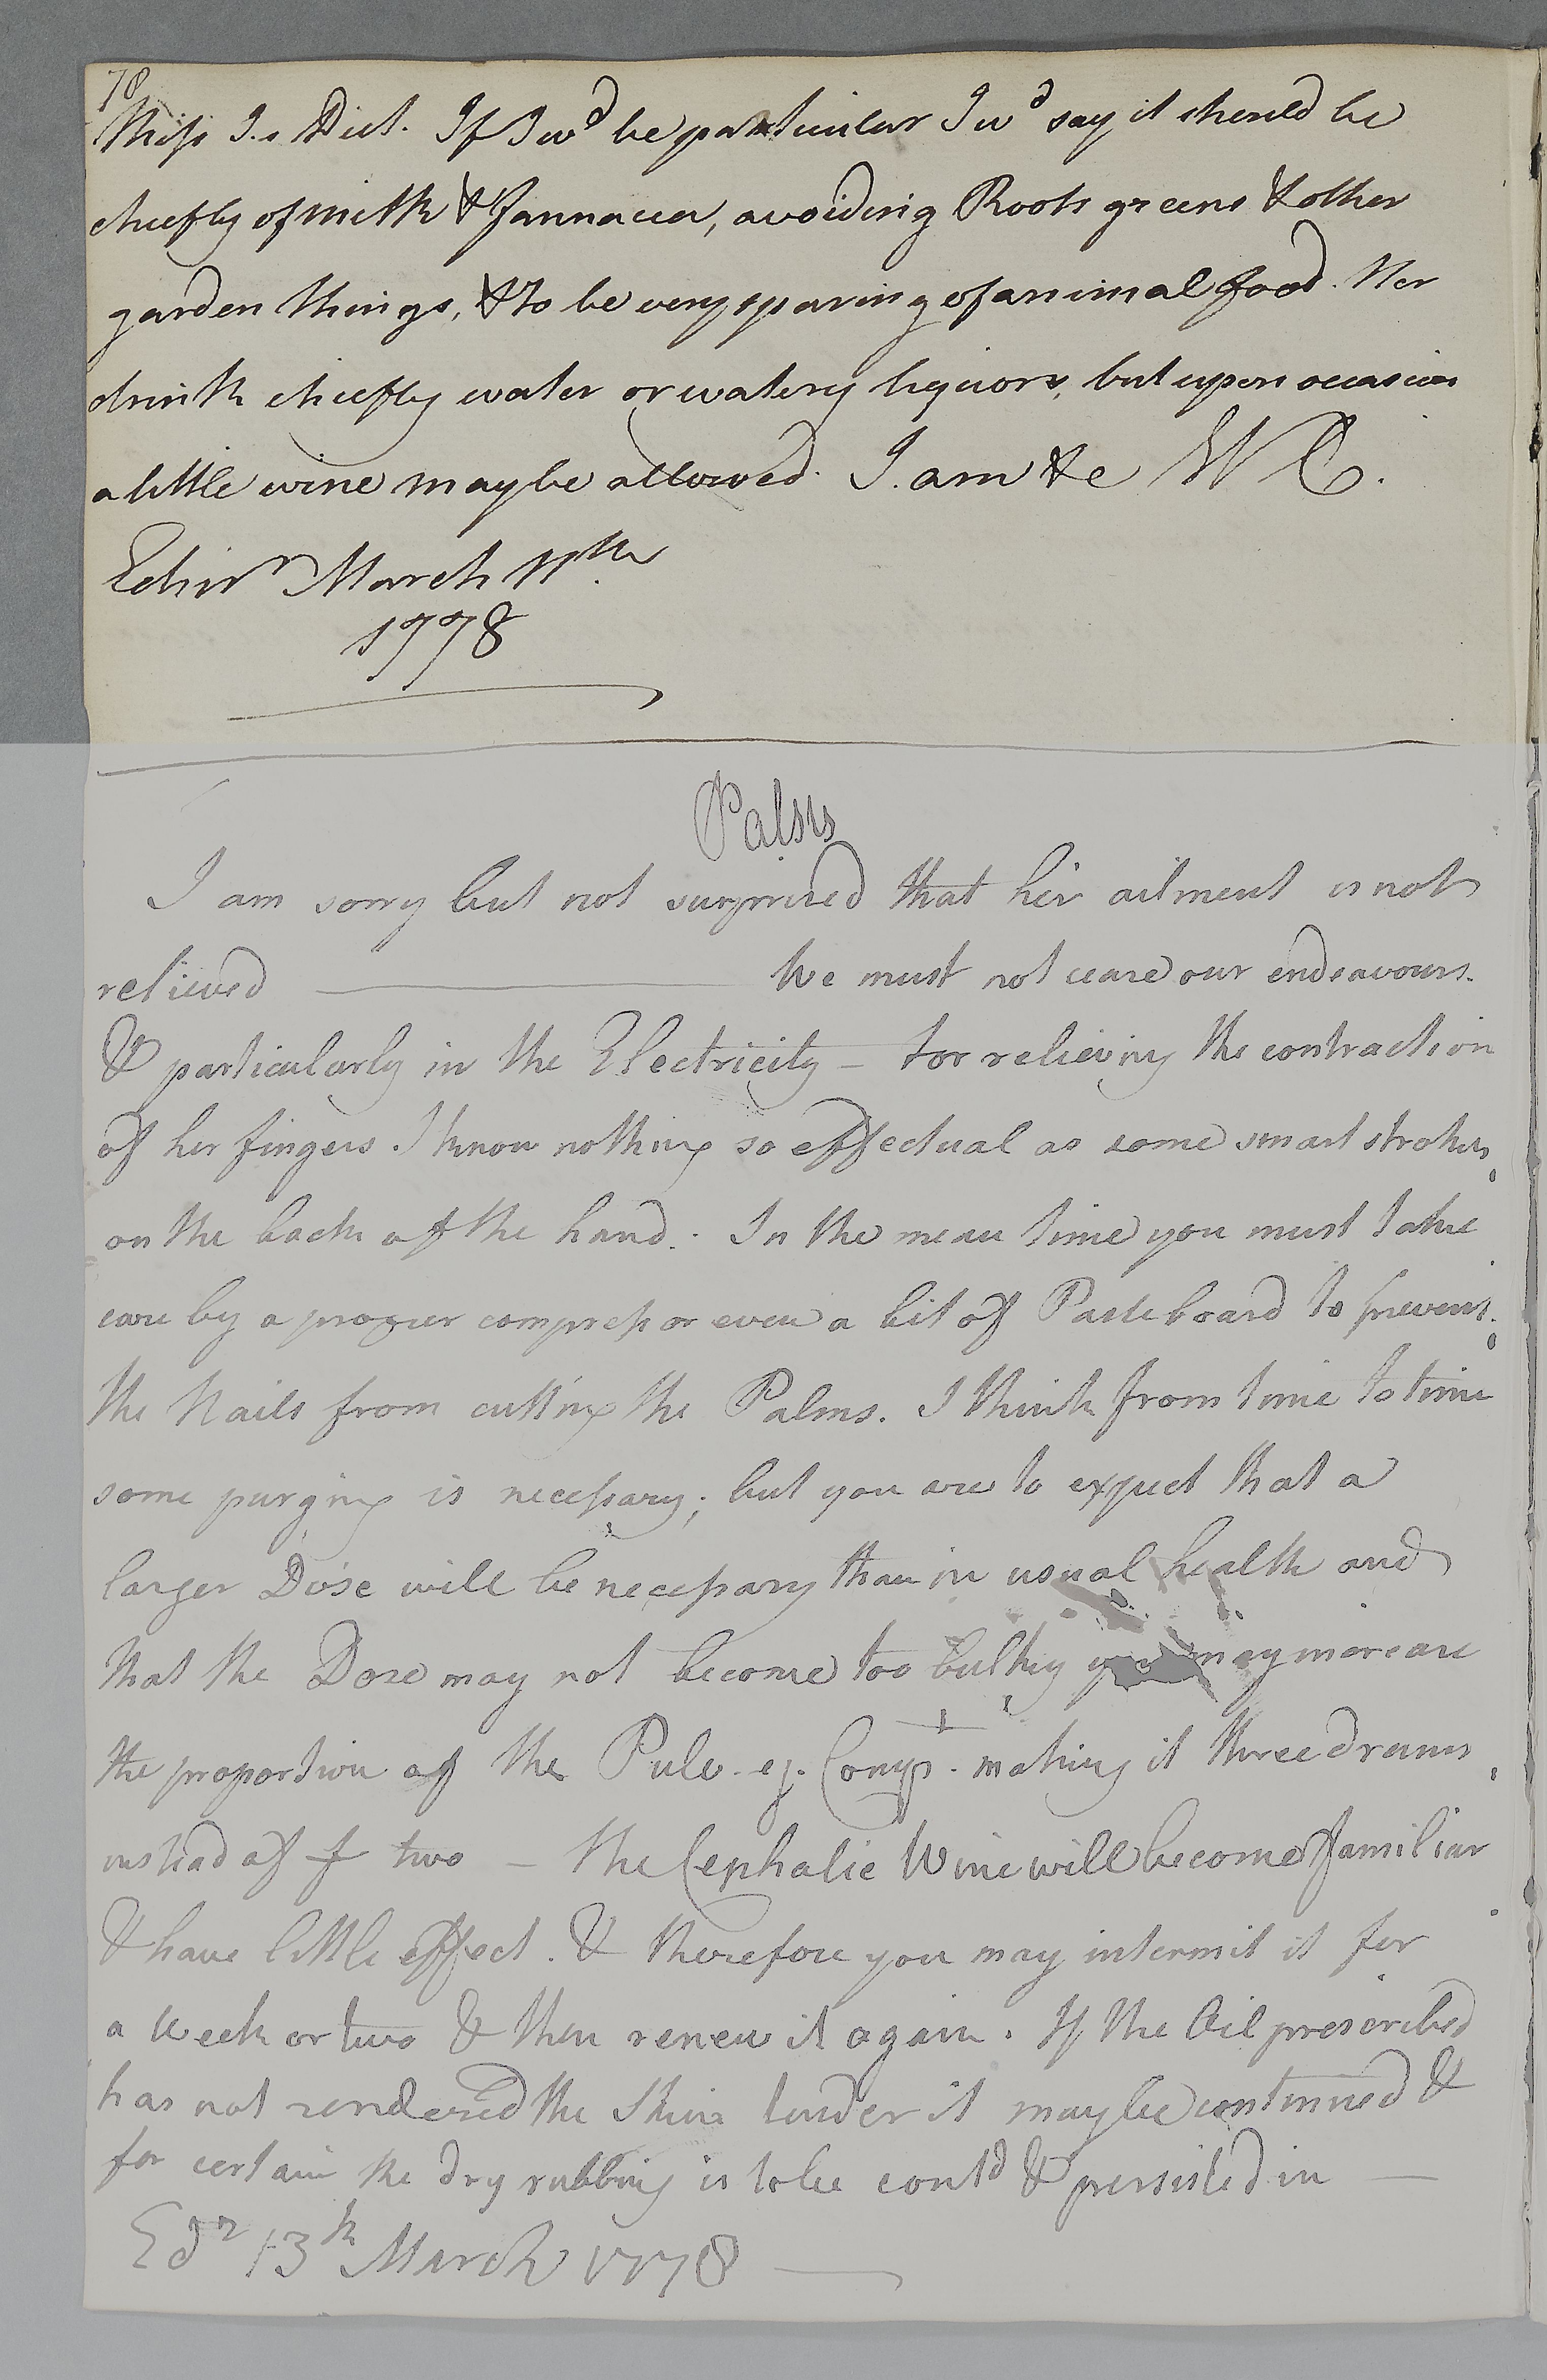 78
Miss J.s Diet. If I wd be particular I wd say it should be
chiefly of milk & farinacea, avoiding Roots greens & other
garden things, & to be very sparing of animal food. Her
drink chiefly water or watery liquors, but upon occasion
a little wine may be allowed. I am &c W C.
Edinr March 11th
1778
Palsis
I am sorry but not surprised that her ailment is not
relieved — We must not cease our endeavours.
& particularly in the Electricity — for relieving the contraction
of her fingers I know nothing so effectual as some smart strokes
on the back of the hand. In the mean time you must take
care by a proper compress or even a bit of Pasteboard to prevent
the Nails from cutting the Palms. I think from time to time
some purging is necessary; but you are to expect that a
larger Dose will be necessary than in usual health and
that the Dose may not become too bulky you may increase
the proportion of the Pulv. ej. Comp. making it three drams
instead of two — the Cephalic Wine will become familiar
& have little effect. & therefore you may intermit it for
a week or two & then renew it again. If the Oil prescribed
has not rendered the Skin tender it may be continued &
for certain the dry rubbing is to be contd & persisted in —
Edr 13th March 1778 —